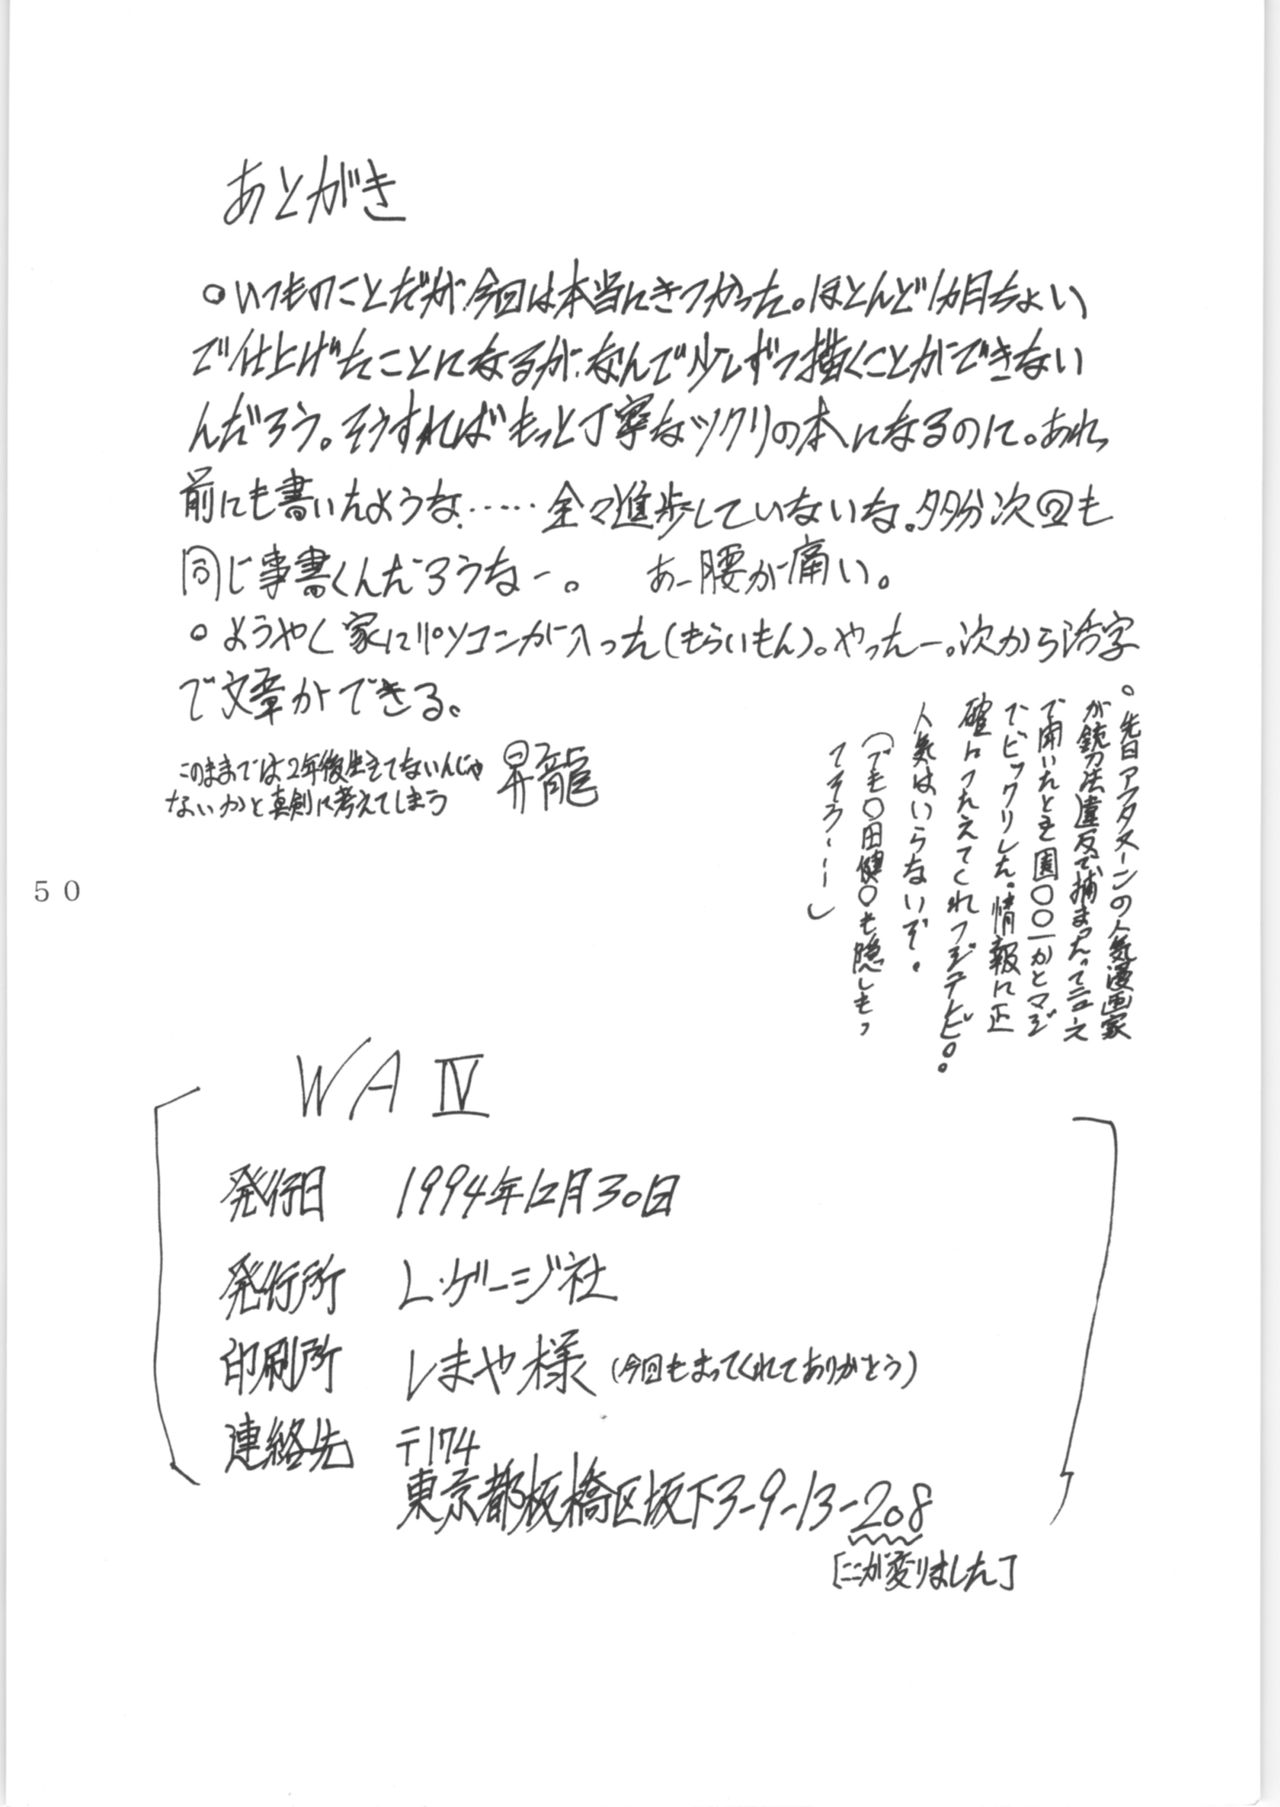 あとがき
○いつものことだが、今回は本当にきつかった。ほとんど1ヵ月ちょい
で仕上げたことになるが、なんで少しずつ描くことができない
んだろう。そうすればもっと丁寧なツクリの本になるのに。あれ
前にも書いたような……全々進歩していないな。多分次回も
同じ事書くんだろうなー。 あー腰が痛い。
○ようやく家にパソコンが入った(もらいもん)。やったー。次から活字
で文章ができる。
このままでは2年後生きてないんじゃ
ないかと真剣に考えてしまう
昇龍
○先日アフタヌーンの人気漫画家
が銃刀法違反で捕まったってニュース
で聞いたとき園○○一かとマジ
でビックリした。情報は正
確につたえてくれフジテレビ。
人気はいらないぞ。
(でも○田健○も隠しもっ
てそう…)
50
WA Ⅳ
発行日 1994年12月30日
発行所 L・ゲージ社
印刷所 しまや様(今回もまってくれてありがとう)
連絡先 〒174
東京都板橋区坂下3-9-13-208
[ここが変りました]